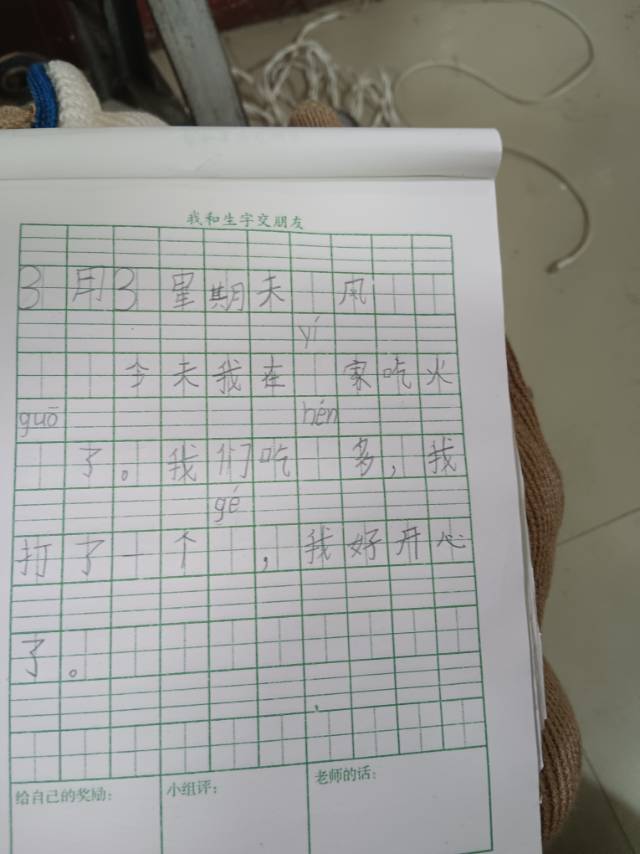 我和生字交朋友
3月3 星期天 风
yí
今天我在 家吃火
guō hén
了。我们吃 多，我
gé
打了一个 ，我好开心
了。
给自己的奖励： 小组评： 老师的话：